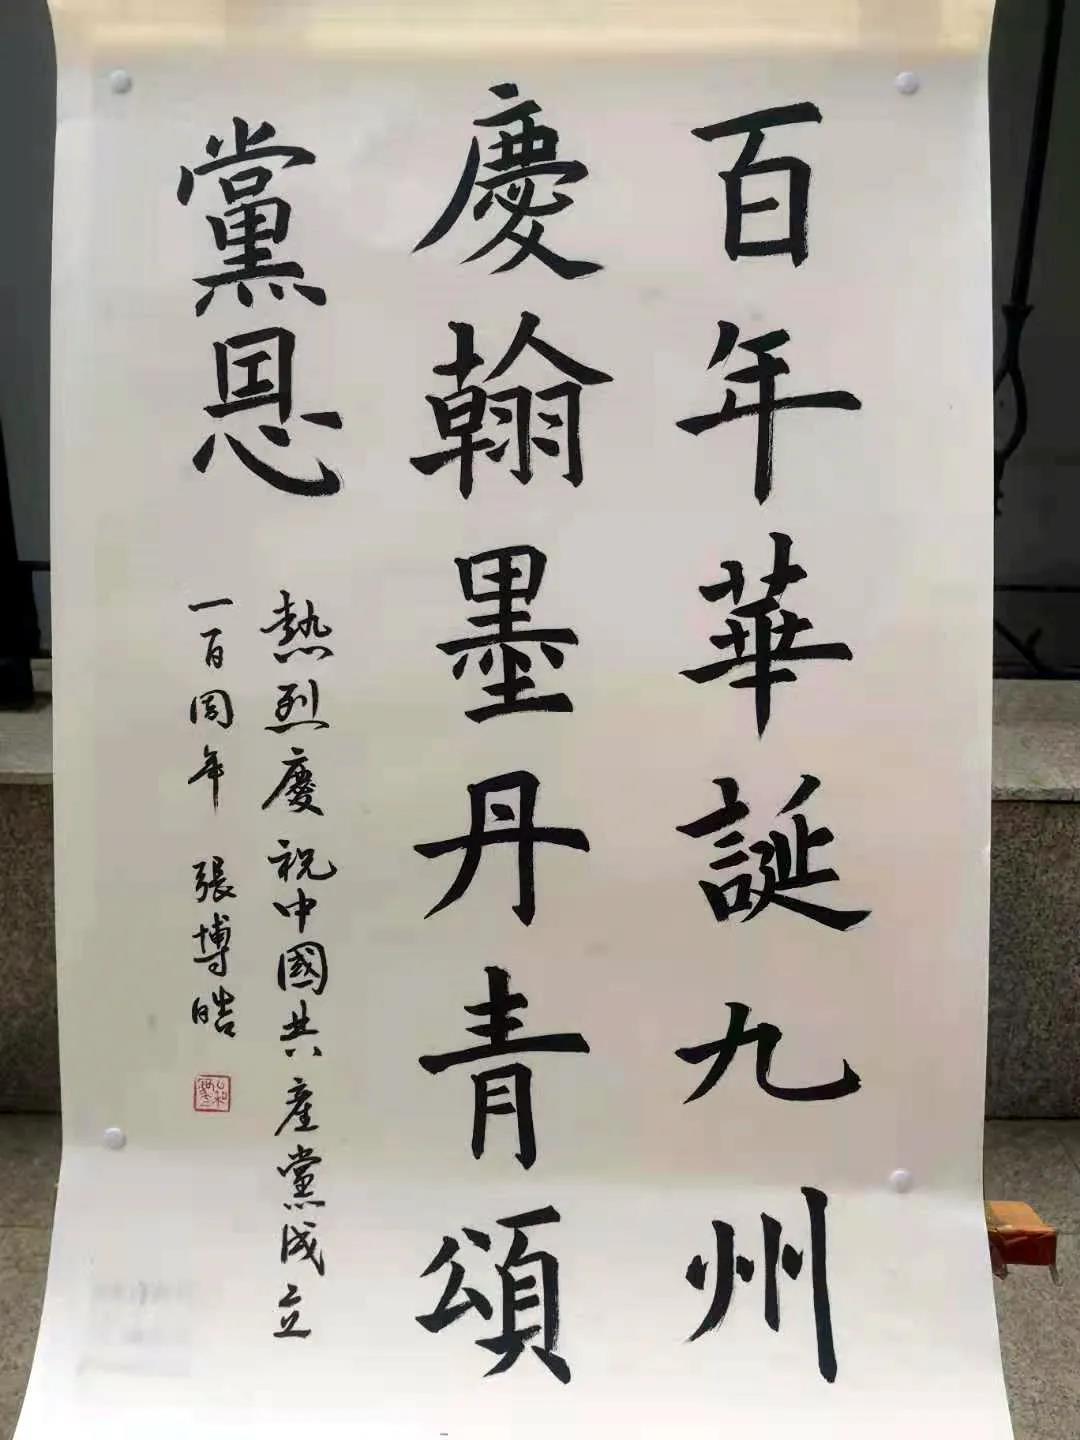 百年華誕九州
慶翰墨丹青頌
黨恩
熱烈慶祝中國共產黨成立
一百周年 張博皓